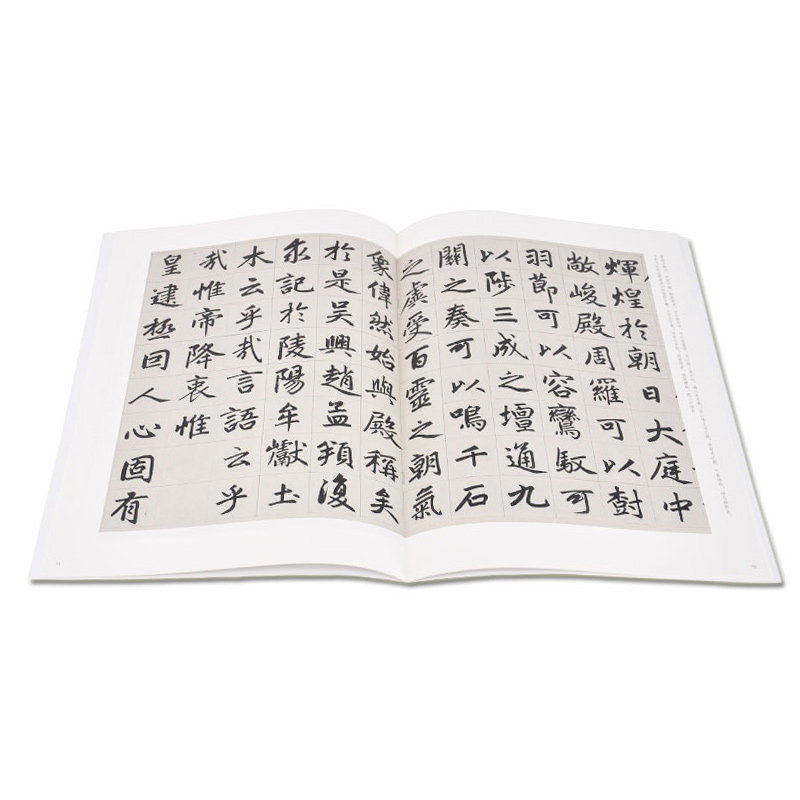 輝煌於朝日大庭中
敞峻殿周羅可以樹
羽節可以容鸞馭可
以陟三成之壇通九
關之奏可以鳴千石
之虛受百靈之朝氣
象偉然始與殿稱矣
於是吳興趙孟頫復
求記於陵陽牟巘土
木云乎哉言語云乎
哉惟帝降衷惟
皇建極因人心固有